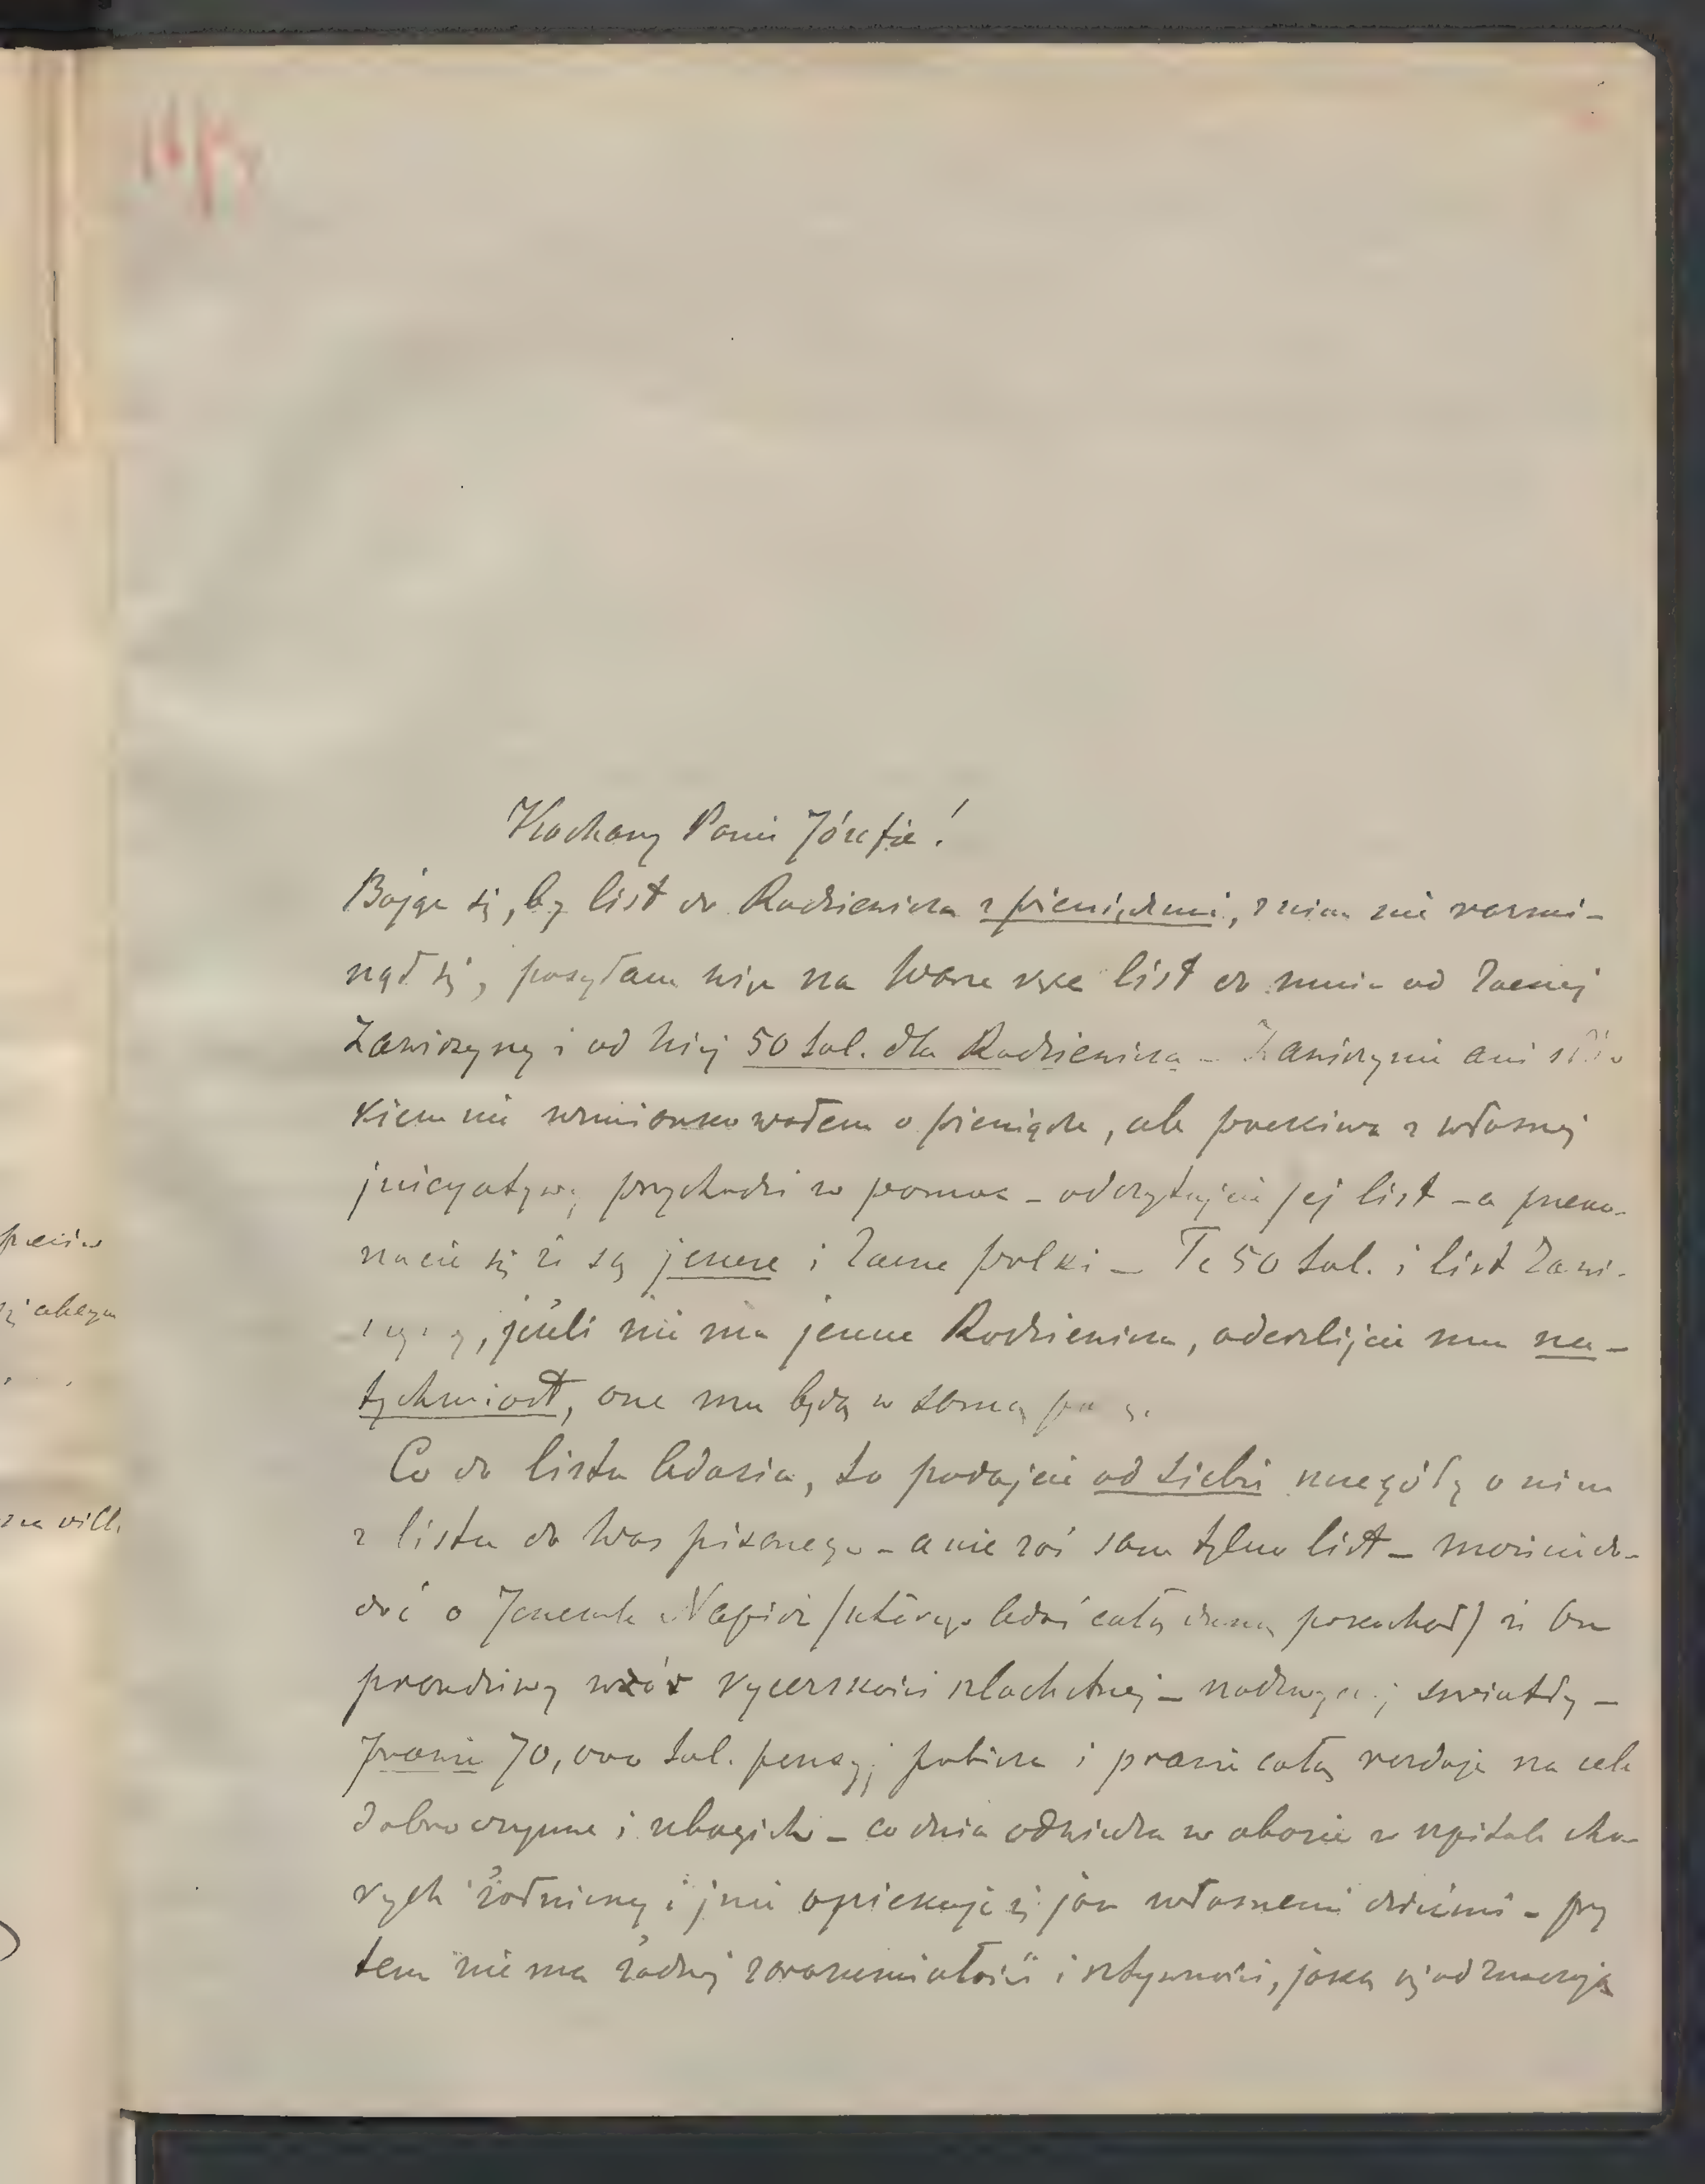 Kochany Panie Józefie!
Bojąc się, by list do Radziewicza z pieniędzmi, z nim nie rozmi-
nął się, posyłam więc na Wasze ręce list do mnie od zacnej
Zawiszyny i od niej 50 tal. dla Radziewicza – Zawiszynie ani
kiem nie wmiankowałem o pieniądze, ale poczciwa z własnej
inicyatywy przychodzi w pomoc – odczytajcie jej list – a przeko-
nacie się że są jeszcze i zacne polki – Te 50 tal. i list Zawi-
szyny, jeśli nie ma jeszcze Radziewicza, odeszlijcie mu na-
tychmiast, one mu będą w samą
Co do listu Adasia, to podajcie od siebie szczegóły o nim
z listu do Was pisanego – a nie zaś sam tylko list – możecie do-
dać o Jenerale Napier (którego Adaś całą duszą pokochał) że On
prawdziwy wzór rycerskości szlachetnej – nadzwyczaj światły –
prawie 70,000 tal. pensyj pobiera i prawie całą rozdaje na cele
dobroczynne i ubogich – co dnia odwiedza w obozie w szpitalu cho-
rych żołnierzy i jemi opiekuje się jak własnemi dziećmi – przy
tem nie ma żadnej zarozumiałości i sztywności, jaką się odznaczają